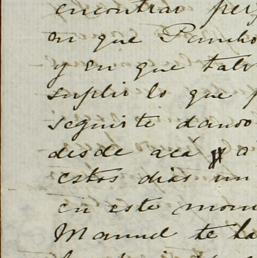 encontrar per
en que Pancho
y en que tal
suplir lo que p
seguirte dando
desde acá y a
estos días un
en este mom
Manuel te ha